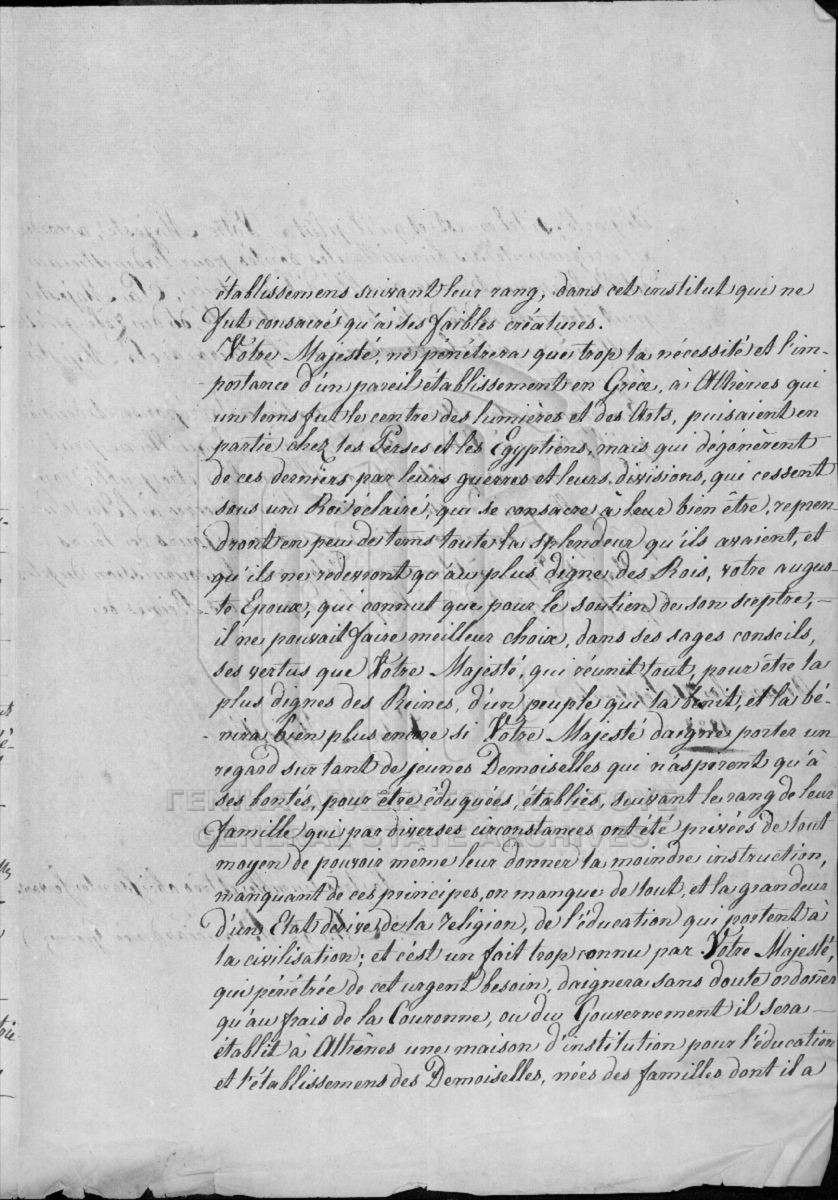 établissemens suivant leur rang, dans cet institut qui ne
fut consacré qu'à ses faibles créatures.
Vôtre Majesté, ne pénétrera que trop la nécessité et l'im-
-portance d'ún pareil établissement en Grèce, à Athènes qui
un tems fut le centre des lumières et des Arts, puisaient en
partie chez les Perses et les Égyptiens, mais qui dégénèrent
de ces derniers par leurs guerres et leurs divisions, qui cessent
sous un Roi éclairé, qui se consacre à leur bien être, repren-
-dront en peu de tems toute la splendeur qu'ils avaient, et
qu'ils ne redevront qu'au plus digne des Rois, votre augus-
-te Epoux, qui connut que pour le soutien de son sceptre,
il ne pouvait faire meilleur choix, dans ses sages conseils,
ses vertus que Vôtre Majesté, qui réunit tout, pour être la
plus dignes des Reines, d'un peuple qui la bénit, et la bé-
-nira bien plus encore si Vôtre Majesté daigne porter un
regard sur tant de jeunes Demoiselles qui n'aspirent qu'à
ses bontés, pour être éduquées, établies, suivant le rang de leur
famille qui par diverses circonstances ont été privées de tout
moyen de pouvoir même leur donner la moindre instruction,
manquant de ces principes, on manque de tout, et la grandeur
d'un Etat dérive de la religion, de l'éducation qui portent à
la civilisation; et c'ést un fait trop connu par Vôtre Majesté,
qui pénétrée de cet urgent besoin, daignera sans doute ordoñer
qu'au frais de la Couronne, ou du Gouvernement il sera
établit à Athènes une maison d'institution pour l'éducation
et l'établissemens des Demoiselles, nées des familles dont il a
ΓΕΝΙΚΑ ΑΡΧΕΙΑ ΤΟΥ ΚΡΑΤΟΥΣ
GENERAL STATE ARCHIVES